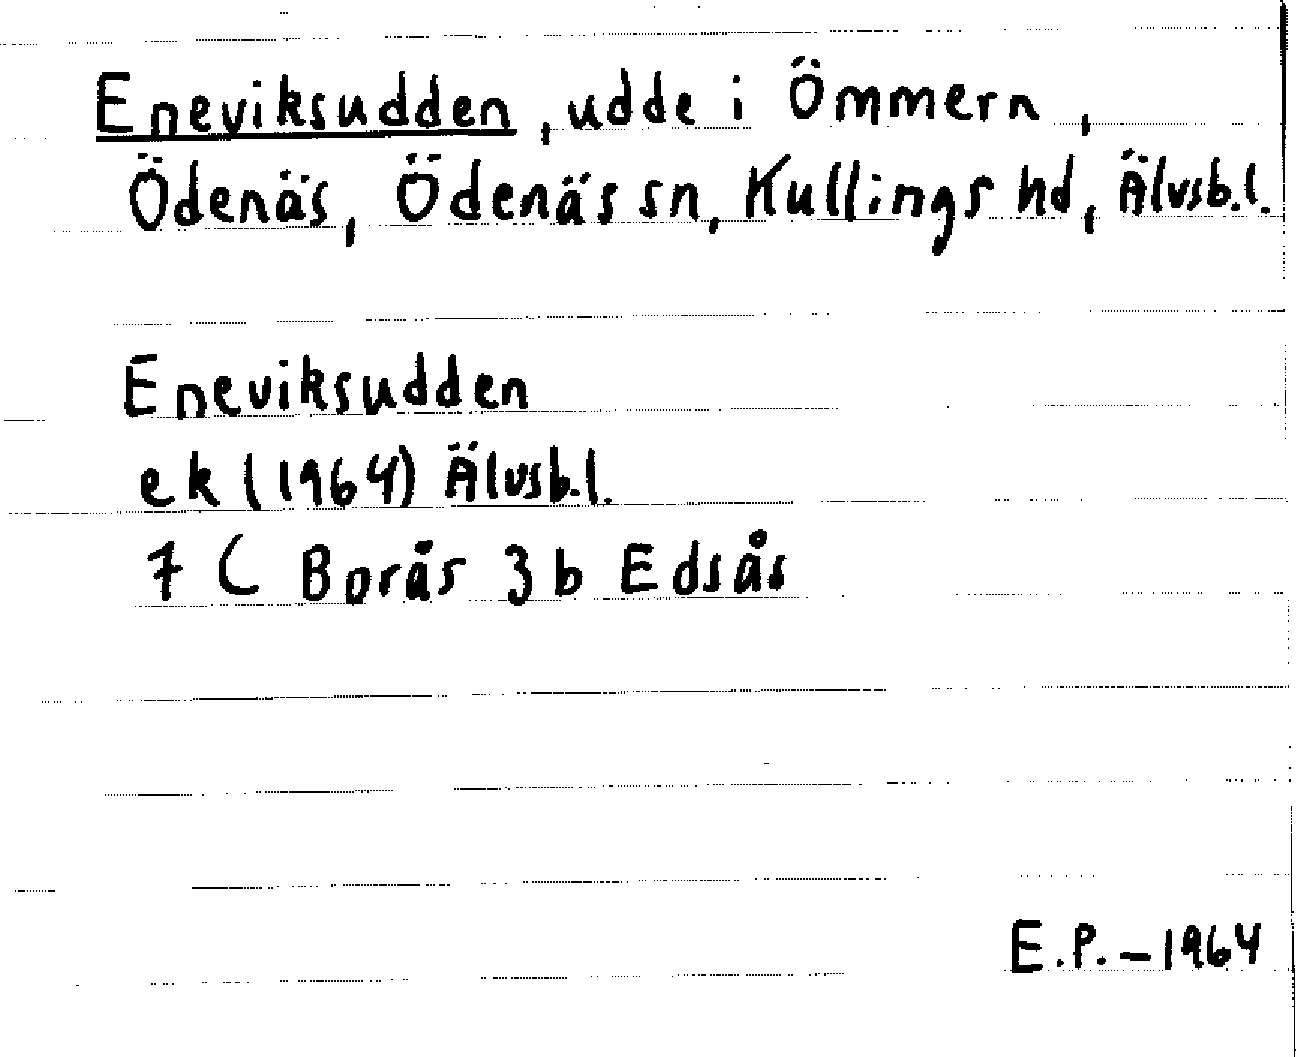 Eneviksudden, udde i Ömmern,
Ödenäs, Ödenäs sn, Kullings hd, Älvsb.l.
Eneviksudden
ek (1964) Älvsb.l.
7 C Borås 3 b Edsås
E.P. – 1964